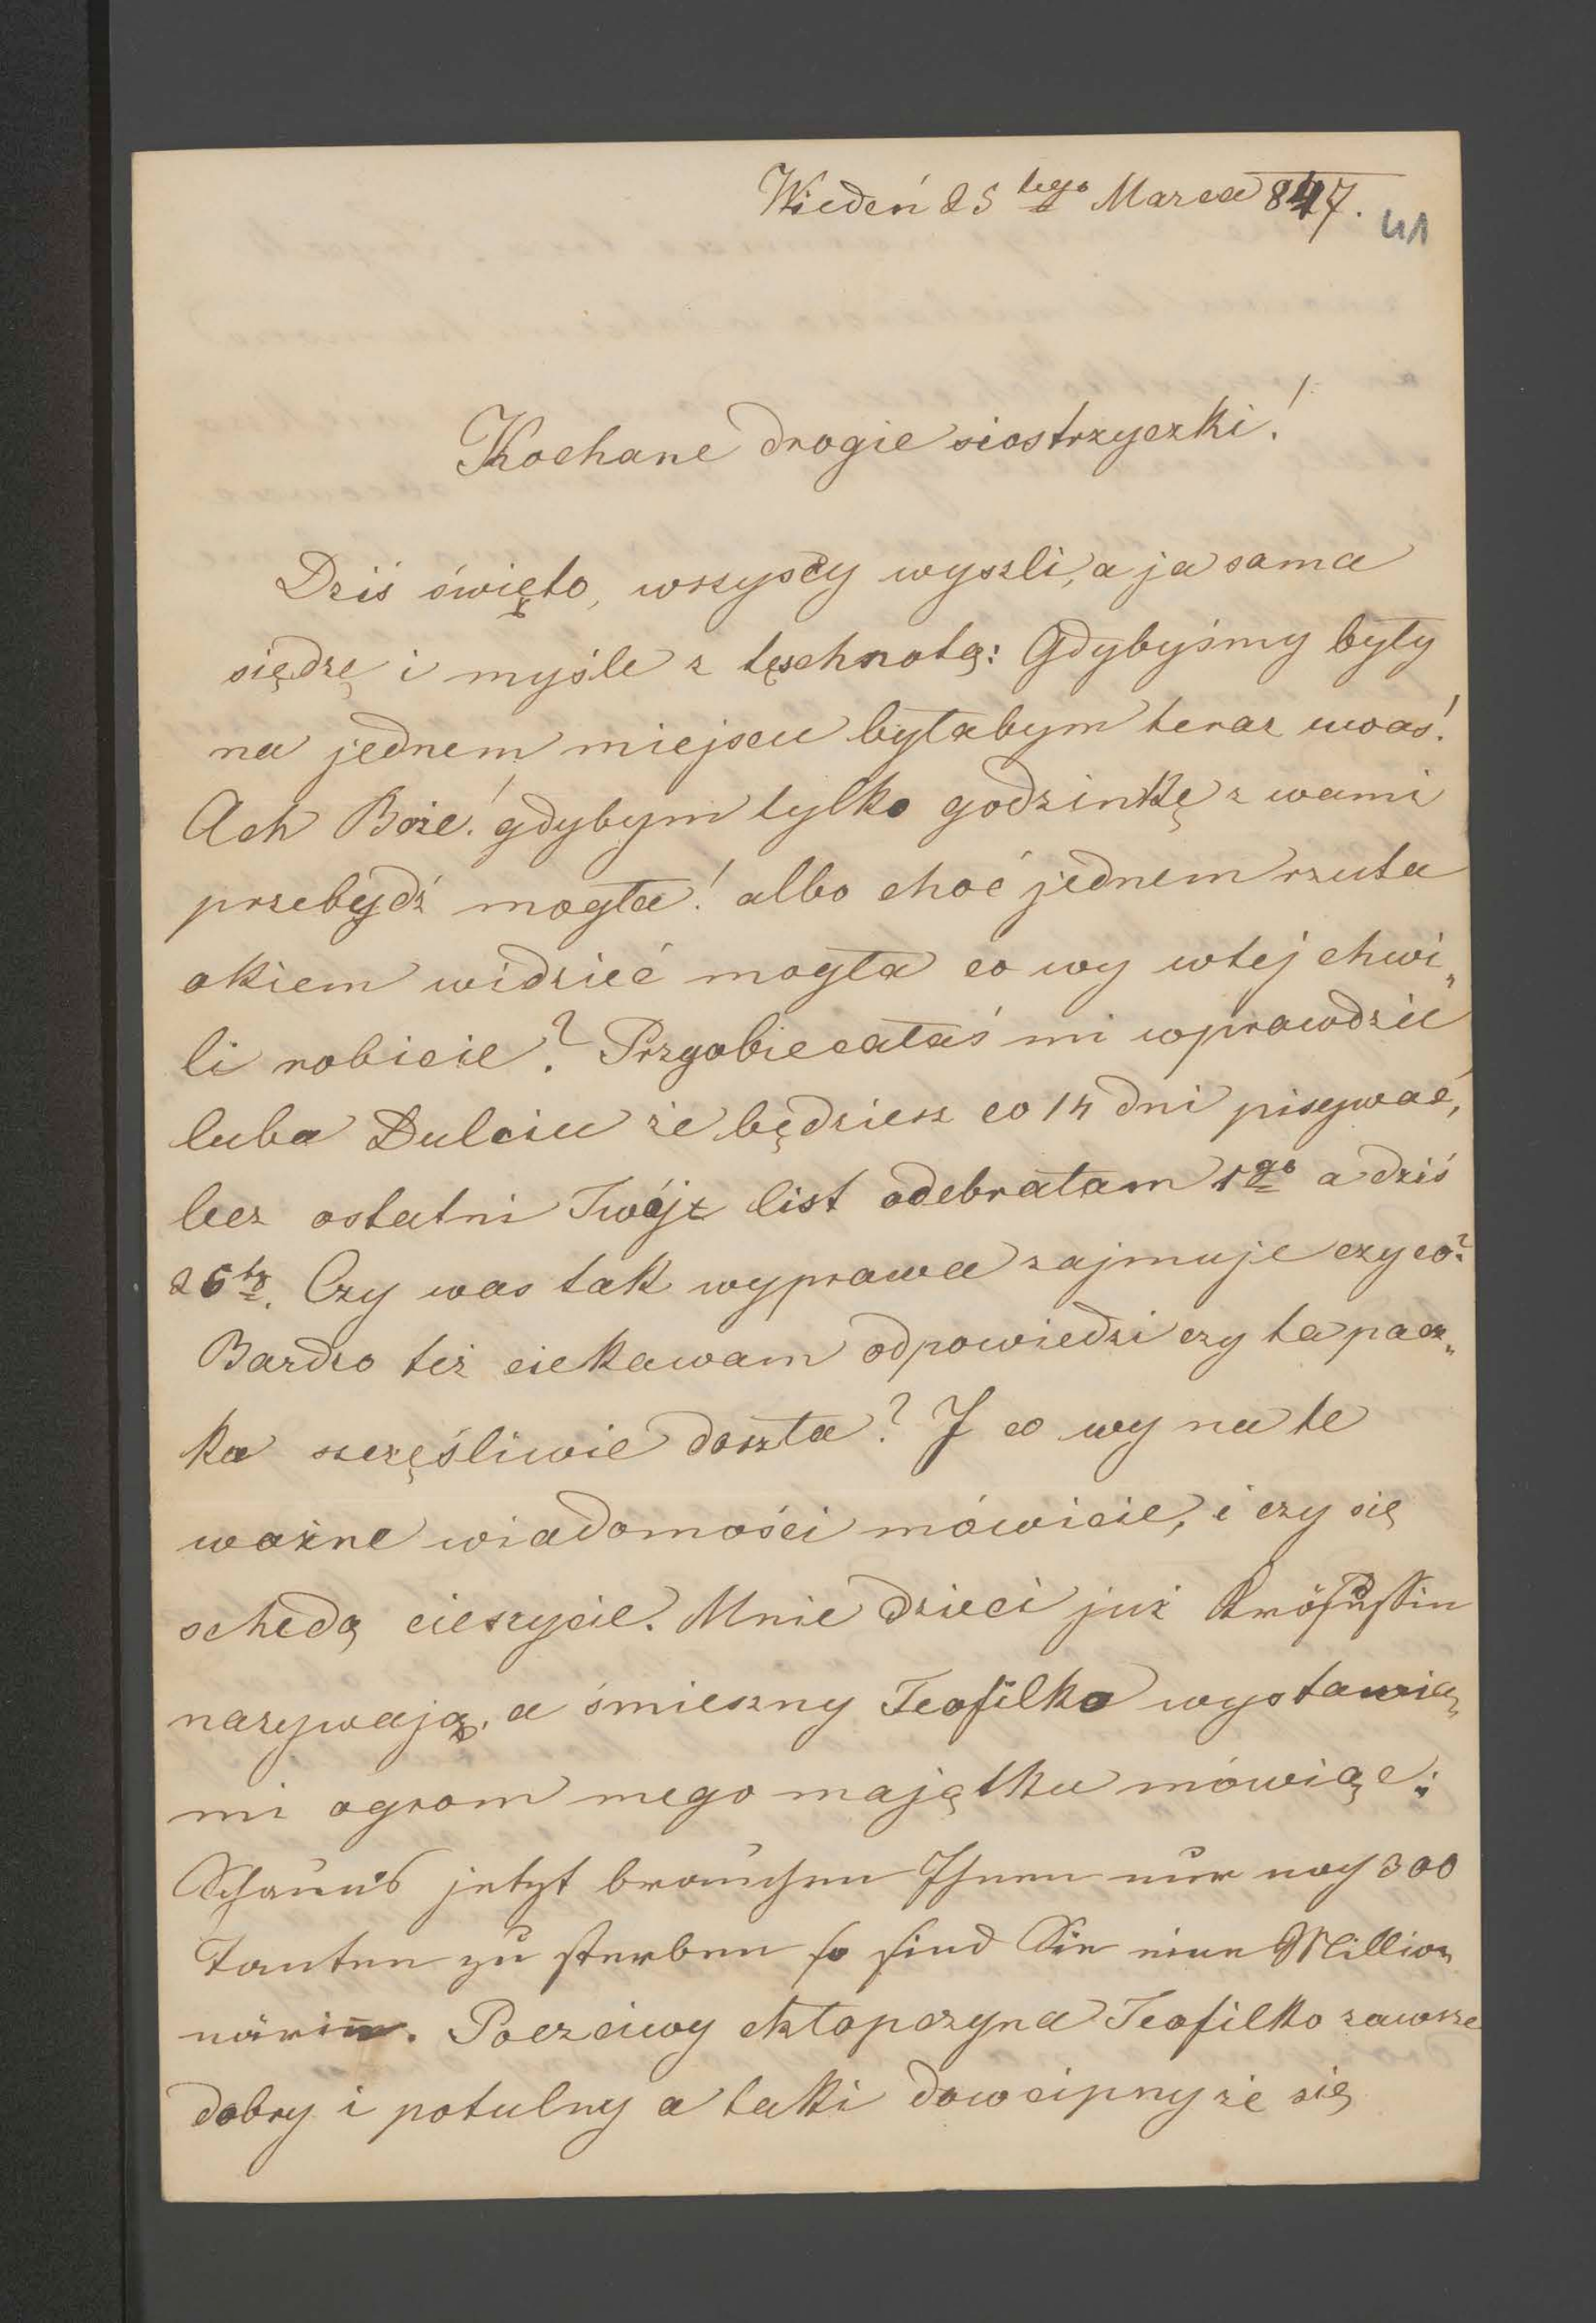 Wiedeń 25 tego Marca 847.
41
Kochane drogie siostrzyczki!
Dziś święto, wszyscy wyszli, a ja sama
siędzę i myśle z tęschnotą: Gdybyśmy były
na jednem miejscu byłabym teraz uwas!
Ach Boże! gdybym tylko godzinkę z wami
przebydź mogła! albo choć jednem rzuta
okiem widzieć mogła co wy wtej chwi„
li robicie? Przyobiecałaś mi wprawdzie
luba Dulciu że będziesz co 14 dni pisywać,
lecz ostatni Twój list odebrałam 1go a dziś
25ty. Czy was tak wyprawa zajmuje czy co?
Bardzo też ciekawam odpowiedzi czy ta pacz„
ka szczęśliwie doszła? I co wy na te
ważne wiadomości mówicie, i czy się
schedą cieszycie. Mnie dzieci już Krösußin
nazywają, a śmieszny Teofilko wystawia„
mi ogrom mego majątku mówiąc:
Schauns jetzt brauchen Ihnen nur noch 300
Tanten zu sterben so sind Sie eine Million„
närin. Poczciwy chłopczyna Teofilko zawsze
dobry i potulny a taki dowcipny że się